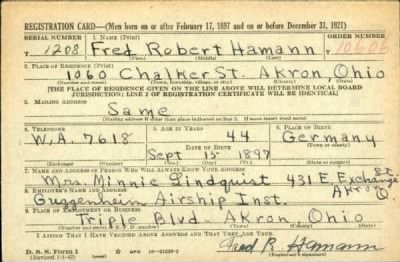 REGISTRATION CARD—(Men born on or after February 17, 1897 and on or before December 31, 1921)
SERIAL NUMBER 1. NAME (Print) ORDER NUMBER
T 1208 Fred Robert Hamann 10606
(First) (Middle) (Last)
2. PLACE OF RESIDENCE (Print)
1060 Chalker St. Akron, Ohio
(Number and street) (Town, township, village, or city) (County) (State)
[THE PLACE OF RESIDENCE GIVEN ON THE LINE ABOVE WILL DETERMINE LOCAL BOARD
JURISDICTION; LINE 2 OF REGISTRATION CERTIFICATE WILL BE IDENTICAL]
3. MAILING ADDRESS
Same
[Mailing address if other than place indicated on line 2. If same insert word same]
4. TELEPHONE 5. AGE IN YEARS 6. PLACE OF BIRTH
W.A. 7618 44 Germany
DATE OF BIRTH (Town or county)
Sept 13 1897
(Exchange) (Number) (Mo.) (Day) (Yr.) (State or country)
7. NAME AND ADDRESS OF PERSON WHO WILL ALWAYS KNOW YOUR ADDRESS
Mrs. Minnie Lindquist 431 E. Exchange St
Akron O.
8. EMPLOYER'S NAME AND ADDRESS
Guggenheim Airship Inst.
9. PLACE OF EMPLOYMENT OR BUSINESS
Triple Blvd - Akron Ohio
(Number and street or R. F. D. number) (Town) (County) (State)
I AFFIRM THAT I HAVE VERIFIED ABOVE ANSWERS AND THAT THEY ARE TRUE.
D. S. S. Form 1
(Revised 1-1-42) GPO 16-21630-2
Fred R. Hamann
(Registrant's signature)